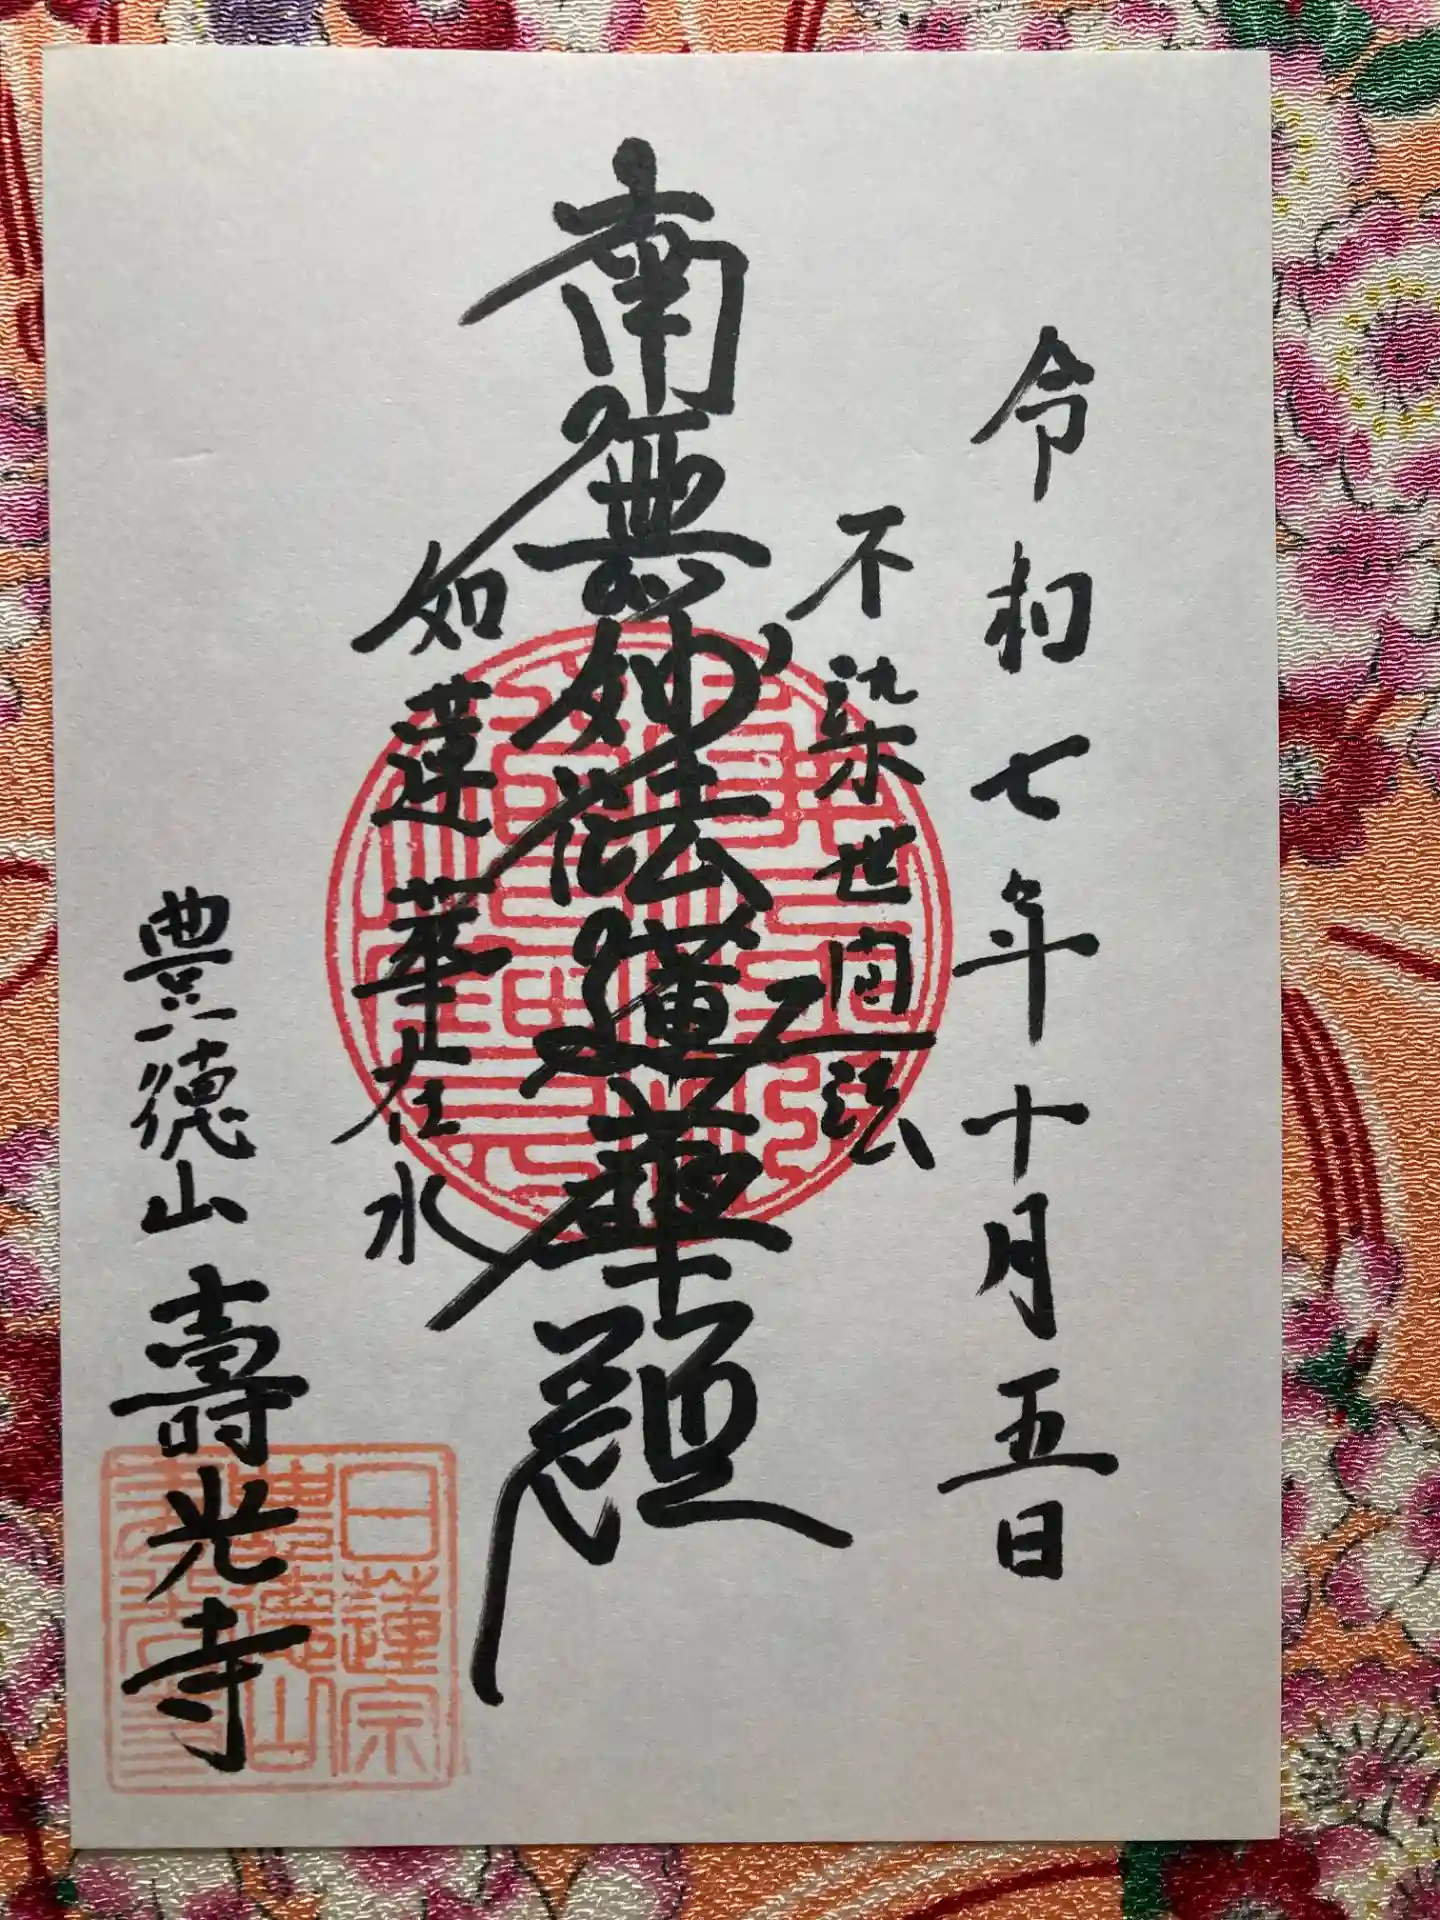 令和七年十月五日
不染世間法
南無妙法蓮華経
如蓮華在水
豊徳山 壽光寺
日蓮宗
豊徳山
壽光寺